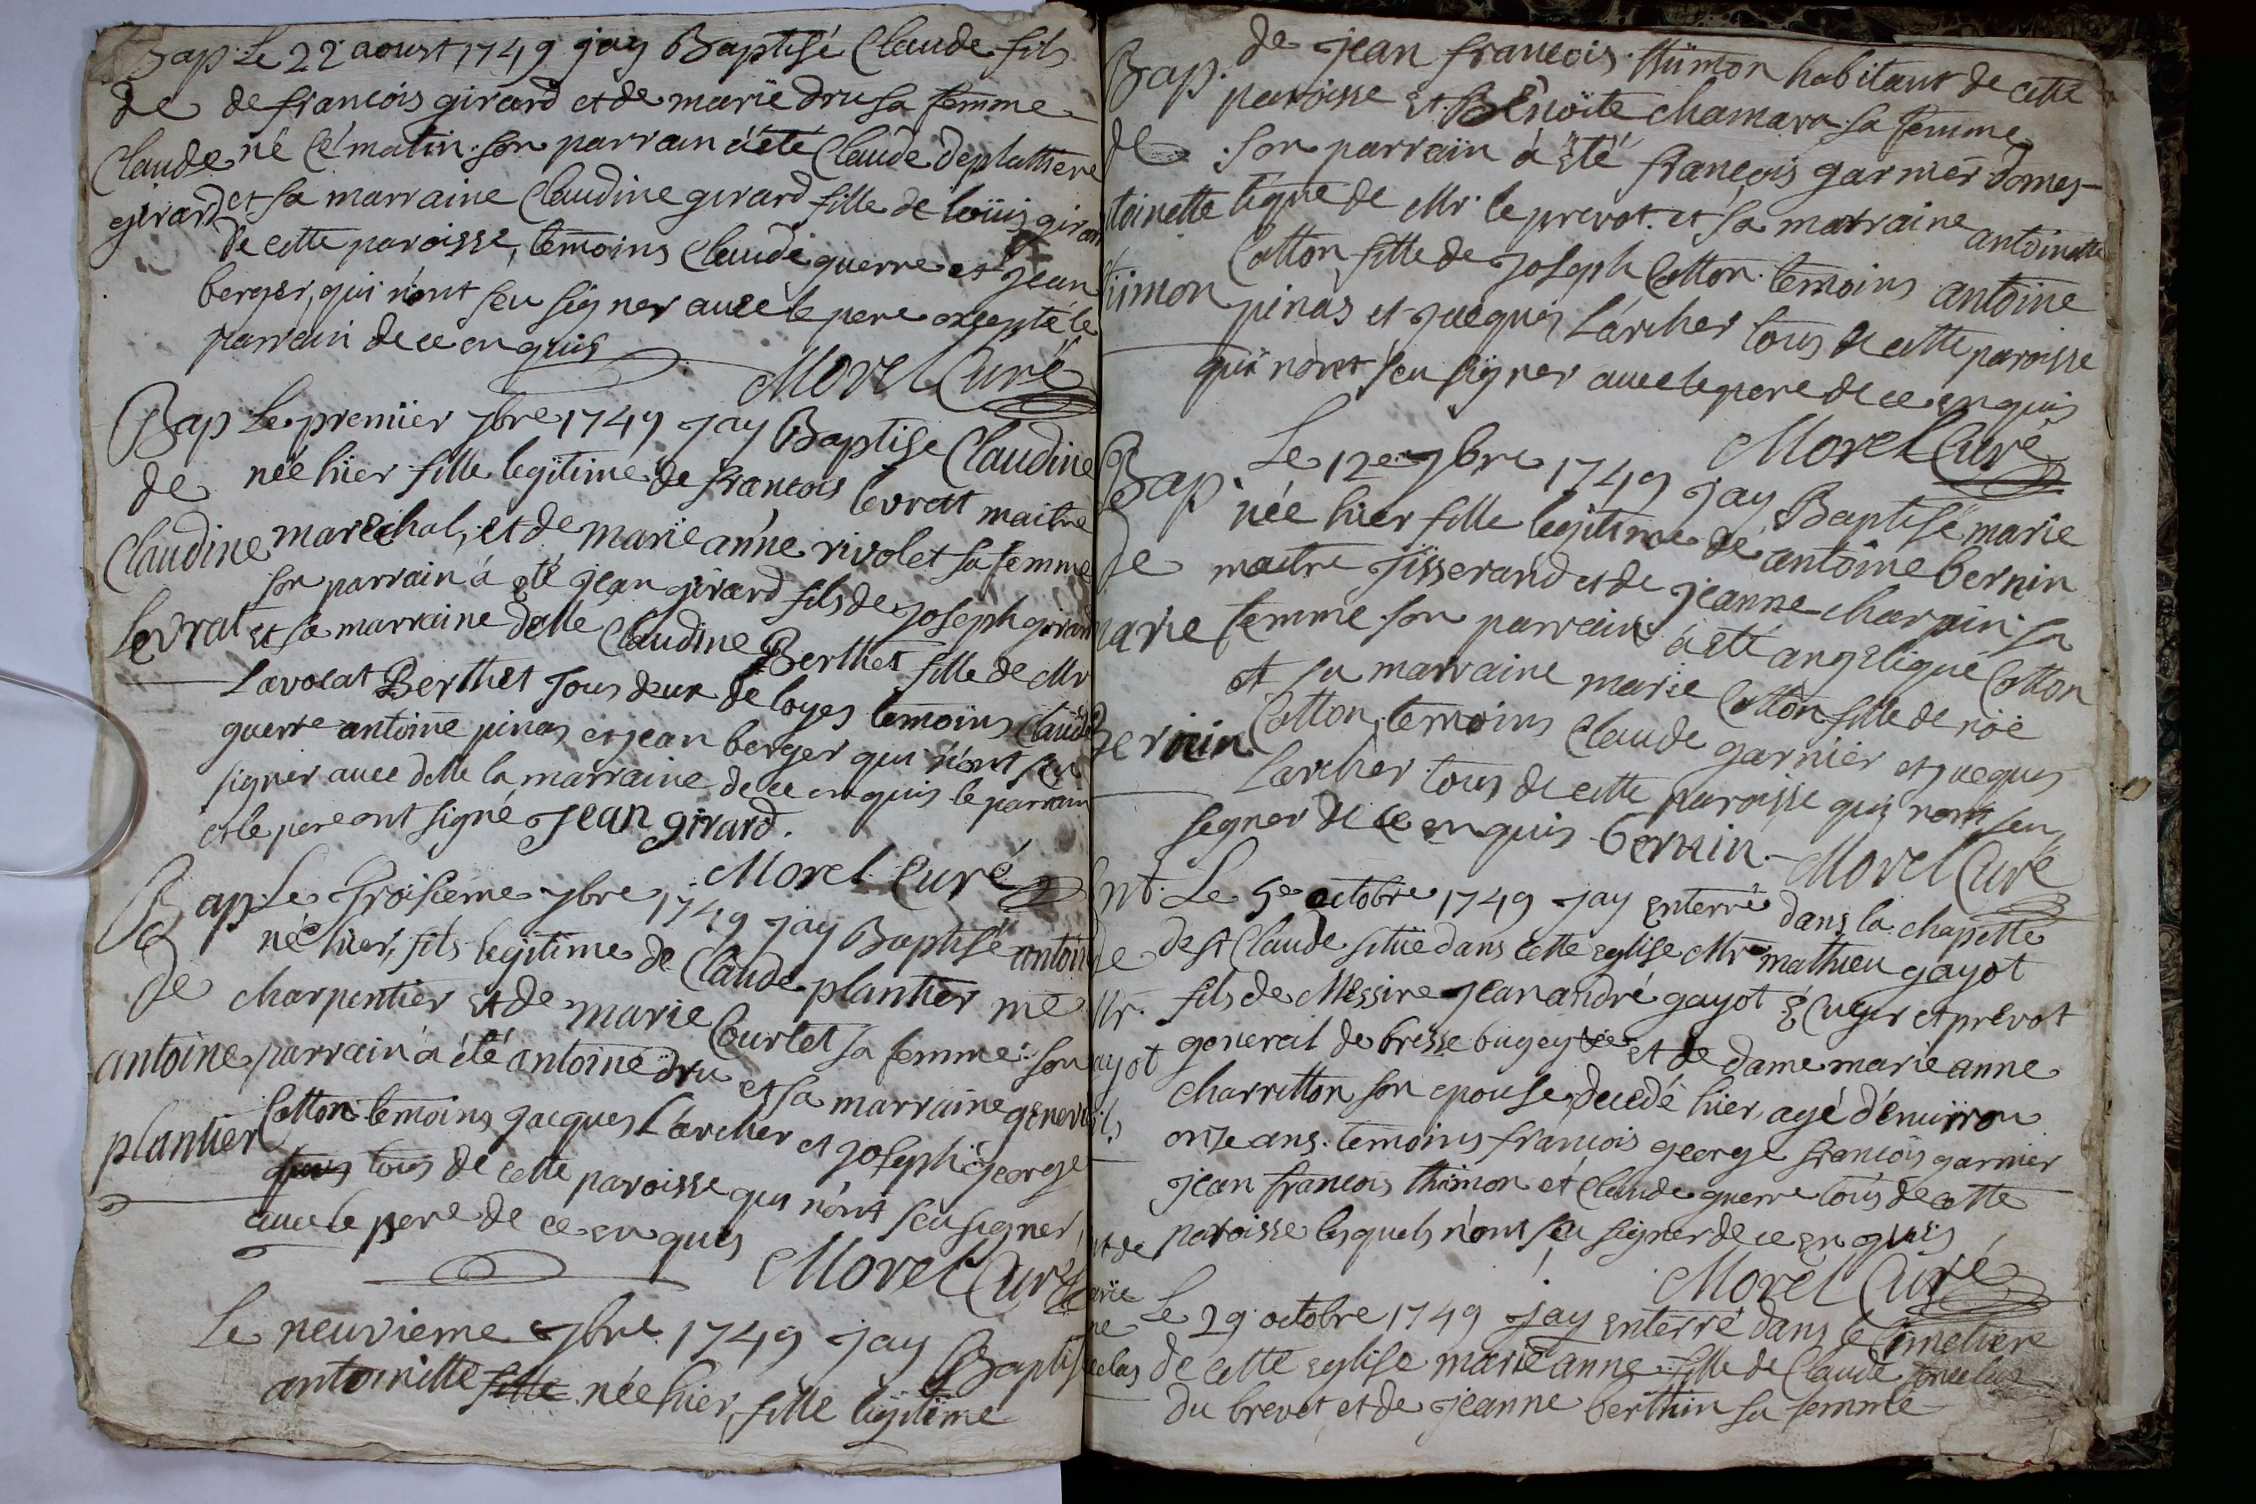 Bap. Le 22 aoust 1749 jay Baptisé Claude fils
de de francois girard et de marie dru sa femme
Claude né cé matin. son parrain á été Claude deplattiere
girard et sa marraine Claudine girard fille de loüis girard
de cette paroisse, temoins Claude guerre et jean
berger, qui n'ont seu signer avec le pere excepté le
parrain de ce enquis
Morel Curé
Bap Le premier 7bre 1749 jay Baptise Claudine
de née hier fille legitime de francois levratt maitre
Claudine maréchal, et de marie anne rivolet sa femme
son parrain á été jean girard fils de joseph girard
Levrat et sa marraine delle Claudine Berthet fille de Mr
Lavocat Berthet tous deux de loyes temoins Claude
guerre antoine pinas et jean berger qui n'ont seu
signer avec delle la marraine de ce enquis le parrain
et le pere ont signé jean girard.
Morel Curé
Bap. Le troisieme 7bre 1749 jay Baptisé antoine
né hier, fils legitime de Claude plantier me
de charpentier et de marie Courlet sa femme. son
antoine parrain á été antoine dru et sa marraine genev
plantier Cotton temoins jacques Larcher et joseph george
tous de cette paroisse qui n'ont seu signer,
avec le pere de ce enquis
Morel Curé
Le neuvieme 7bre 1749 jay Baptisé
antoinette fille née hier, fille legitime
Bap. de jean francois thimon habitant de cette
paroisse et Benoite chamara sa femme
de son parrain á été francois garnier domes-
toinette tique de Mr. le prevot. et sa marraine antoinette
Cotton fille de joseph Cotton. temoins antoine
himon pinas et jacques Larcher tous de cette paroisse
qui n'ont seu signer avec le pere de ce enquis
Morel Curé
Bap. Le 12e 7bre 1749 jay Baptisé marie
née hier fille legitime de antoine bernin
de maitre tisserand et de jeanne charpin sa
marie femme son parrain á été angelique Cotton
et sa marraine marie Cotton fille de noé
bernin Cotton, temoins Claude garnier et jacques
Larcher tous de cette paroisse qui n'ont seu
signer de ce enquis bernin.
Morel Curé
Ent. Le 5e octobre 1749 jay enterré dans la chapelle
de de St Claude située dans cette eglise Mr mathieu gayot
Mr. fils de Messire jean andré gayot Ecuyer et prevot
general de bresse bugey et de dame marie anne
ayot charretton son epouse, decedé hier, agé d'environ
fils onze ans. temoins francois george francois garnier
jean francois thimon et Claude guerre tous de cette
paroisse lesquels n'ont seu signer de ce enquis
Morel Curé
nt de
arie Le 29 octobre 1749 jay enterré dans le Cimetiere
ne
de cette eglise marie anne fille de Claude
du brevet et de jeanne berthin sa femme